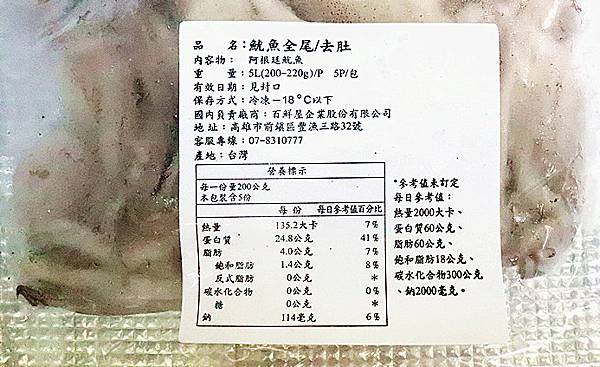 品　　名：魷魚全尾/去肚
內容物：　阿根廷魷魚
重　　量：5L(200-220g)/P　5P/包
有效日期：見封口
保存方式：冷凍－18°C以下
國內負責廠商：百鮮屋企業股份有限公司
地 址：高雄市前鎮區豐漁三路32號
客服專線：07-8310777
產地：台灣
營養標示
每一份量200公克
本包裝含5份
每 份　每日參考值百分比
熱量　135.2大卡　7%
蛋白質　24.8公克　41%
脂肪　4.0公克　7%
飽和脂肪　1.4公克　8%
反式脂肪　0公克　*
碳水化合物　0公克　0%
糖　0公克　*
鈉　114毫克　6%
*參考值未訂定
每日參考值：
熱量2000大卡、
蛋白質60公克、
脂肪60公克、
飽和脂肪18公克、
碳水化合物300公克
、鈉2000毫克。